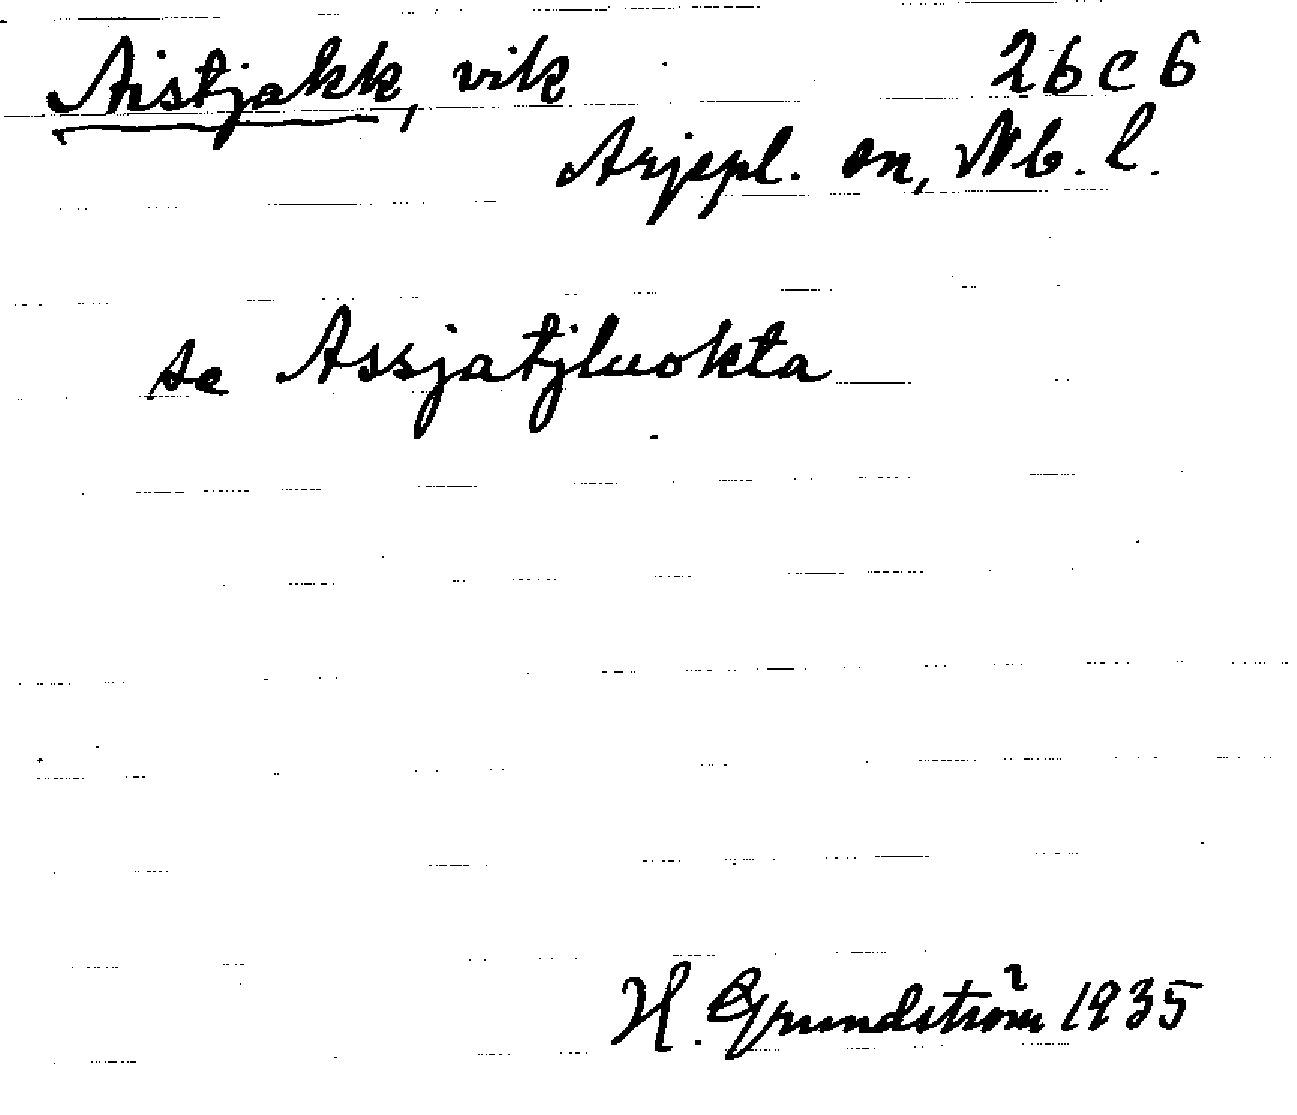 Aistjakk, vik 26 c 6
Arjepl. sn, Nb. l.
se Assjatjluokta
H. Grundström 1935